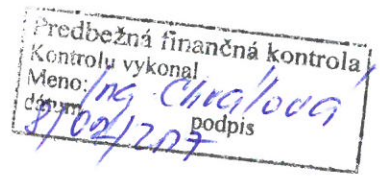 Predbežná finančná kontrola
Kontrolu vykonal
Meno: Ing Chválová
dátum podpis